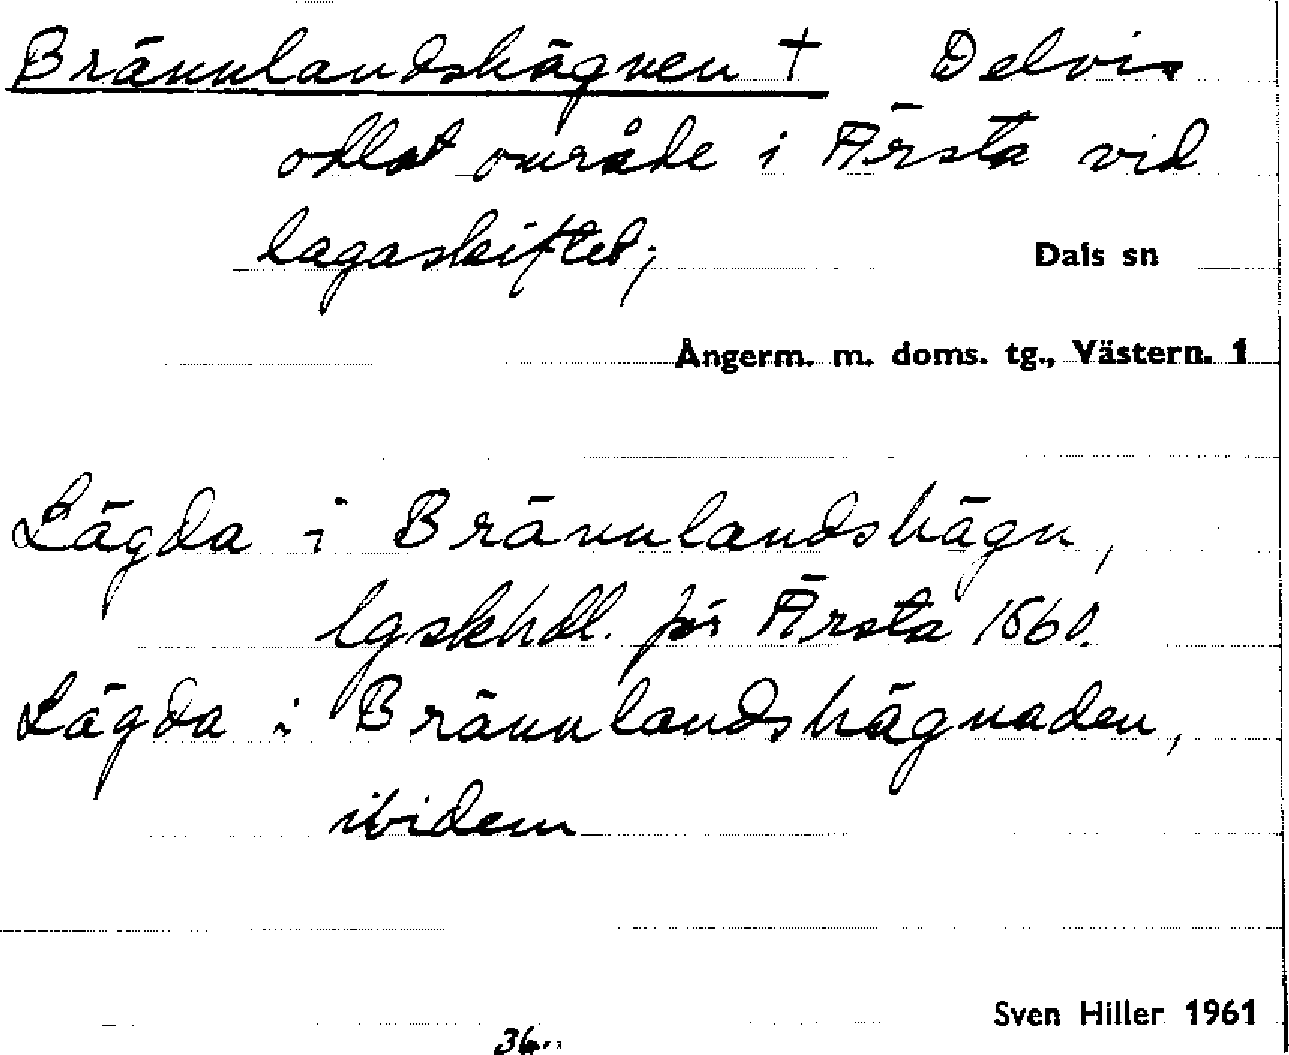 Brännlandshägnen † Delvis
odlat område i Ärsta vid
lagaskiftet;
Dals sn
Ångerm. m. doms. tg., Västern. 1
Lägda i Brännlandshägn,
lgskhdl. för Ärsta 1860.
Lägda i Brännlandshägnaden,
ibidem
Sven Hiller 1961
36